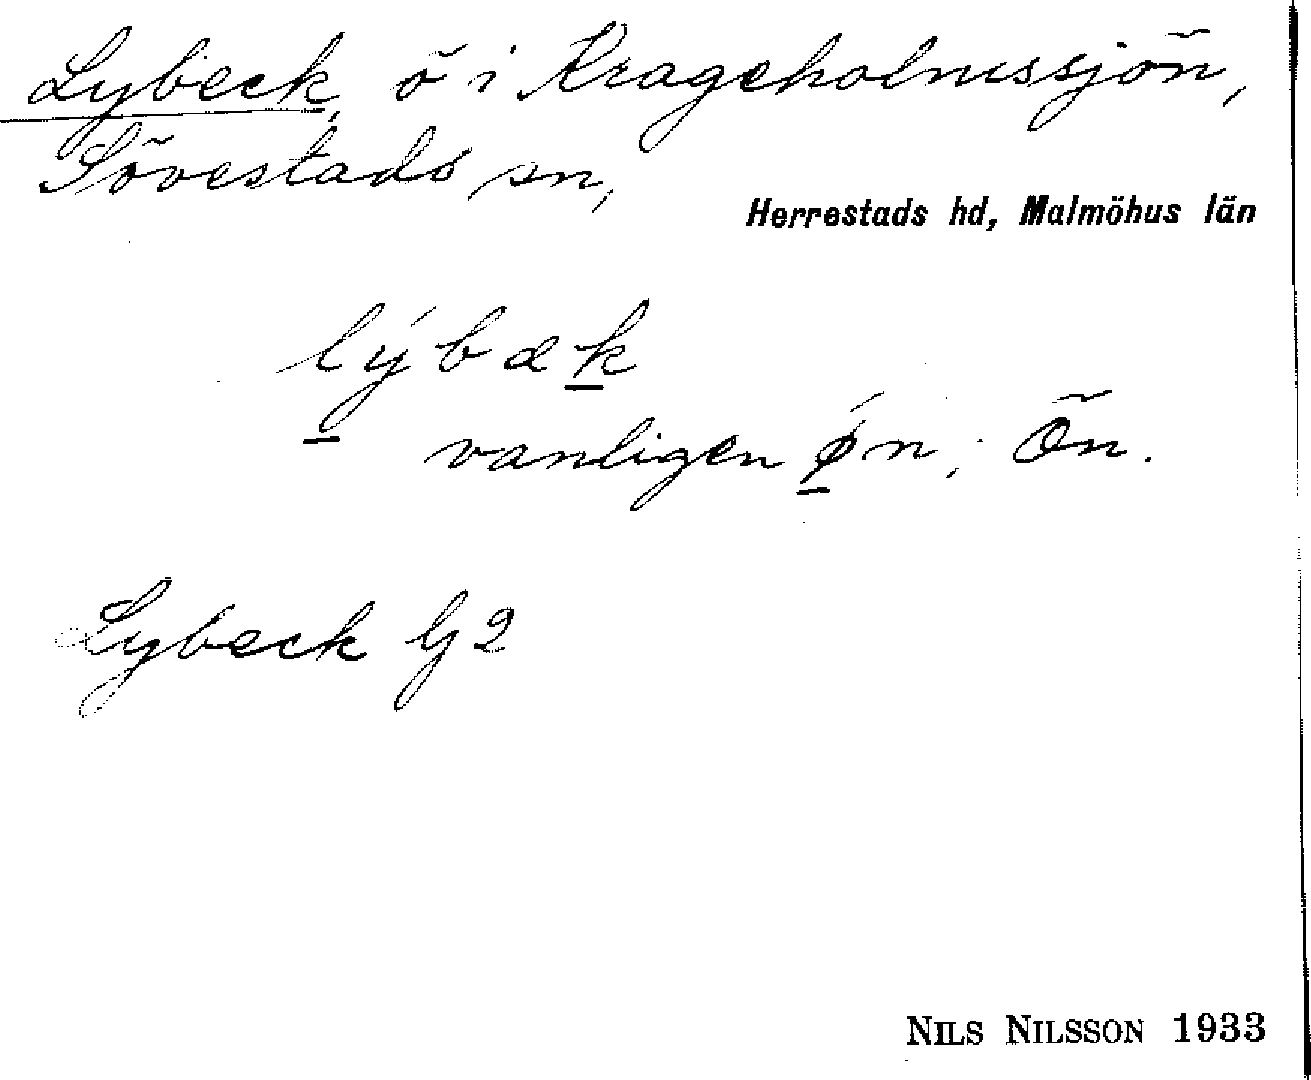 Lybeck, ö i Krageholmssjön,
Sövestads sn,
Herrestads hd, Malmöhus län
lýbæk
vanligen ǿn; Ön.
Lybeck G2
NILS NILSSON 1933